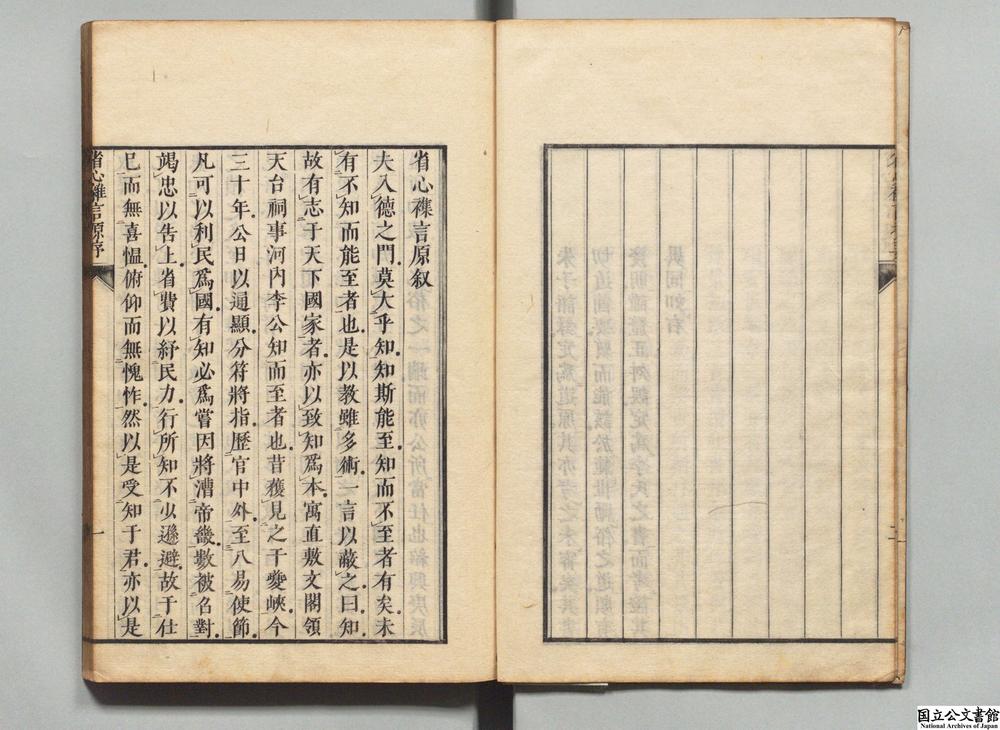 省心襍言原叙
夫入德之門莫大乎知知斯能至知而不至者有矣未
有不知而能至者也是以教雖多術一言以蔽之曰知
故有志于天下國家者亦以致知爲本寓直敷文閣領
天台祠事河内李公知而至者也昔獲見之于夔峽今
三十年公日以通顯分符將指歷官中外至八易使節
凡可以利民爲國有知必爲嘗因將漕帝畿數被名對
竭忠以告上省費以紓民力行所知不少遜避故于仕
已而無喜愠俯仰而無愧怍然以是受知于君亦以是
省心雜言原序
一
国立公文書館
National Archives of Japan